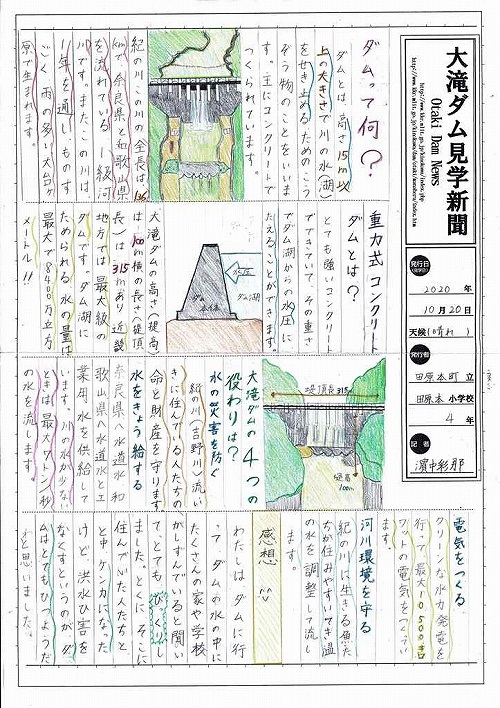 大滝ダム見学新聞
Otaki Dam News
発行日
2020年
10月20日
天候(晴れ)
発行者
田原本町立
田原本小学校
4年
記者
ダムって何?
ダムとは、高さ15m以
上の大きさで川の水(湖)
をせき止めるためのこう
ぞう物のことをいいま
す。主にコンクリートで
つくられています。
紀の川この川の全長は136
kmで奈良県と和歌山県
を流れている一級河
川です。また、この川は
1年を通しものす
ごく雨の多い大台ケ
原で生まれます。
重力式コンクリート
ダムとは?
とても強いコンクリート
でできていて、その重さ
でダム湖からの水圧に
たえることができます。
水圧
ダム湖
ダム
本体
大滝ダムの高さ(堤高)
は100m横の長さ(堤頂
長)は315mあり近畿
地方では最大級の
ダムです。ダム湖に
ためられる水の量は
最大で8400万立方
メートル!!
堤頂長315m
堤高
100m
大滝ダムの4つの
役わりは?
水の災害を防ぐ
紀の川(吉野川)流い
きに住んでいる人たちの
命と財産を守ります。
水をきょう給する
奈良県へ水道水和
歌山県へ水道水と工
業用水を供給して
います。川の水が少ない
ときは最大7トン/秒
の水を流します。
電気をつくる
クリーンな水力発電を
行って、最大10500キロ
ワットの電気をつくってい
ます。
河川環境を守る
紀の川に生きる魚た
ちが住みやすいてき温
の水を調整して流し
ます。
感想
わたしはダムに行
って、ダムの水の中に
たくさんの家や学校
がしずんでいると聞い
てとてもびっくりし
ました。とくにそこに
住んでいた人たちと
と中ケンカになった
けど、洪水ひ害を
なくすというのがダ
ムはとてもひつようだ
なと思いました。